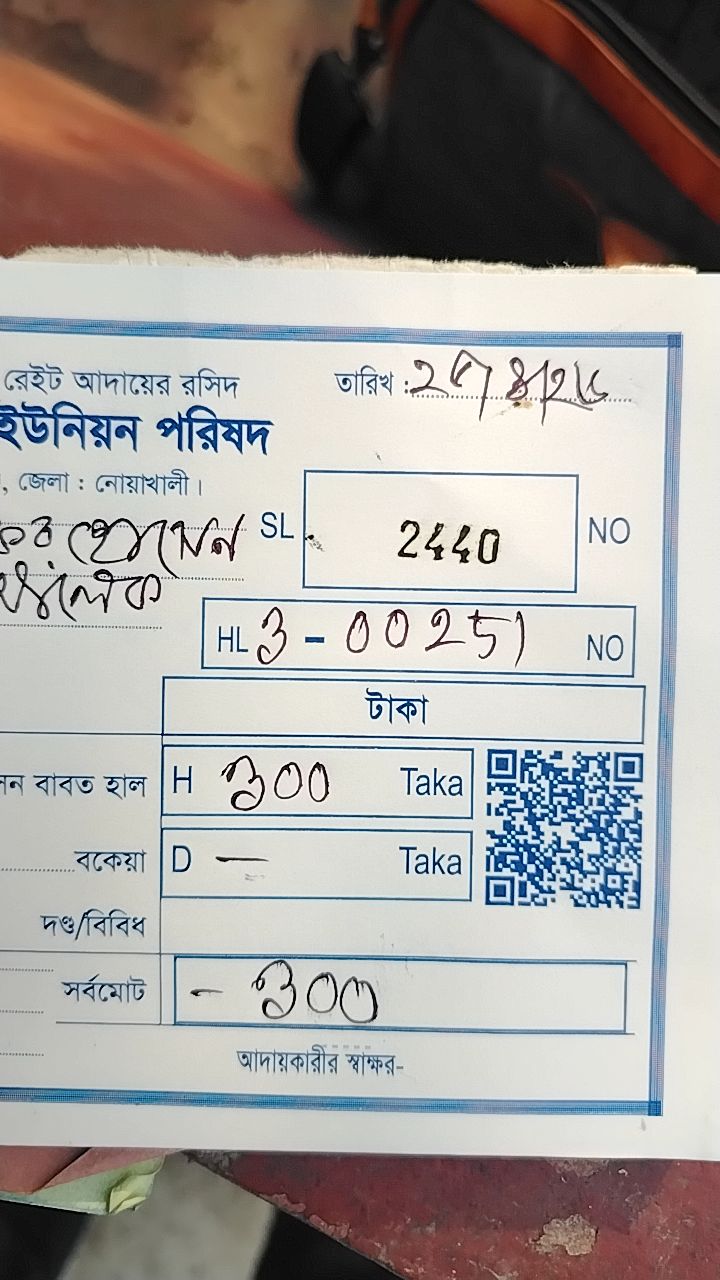 রেইট আদায়ের রসিদ তারিখ :
ইউনিয়ন পরিষদ
, জেলা : নোয়াখালী।
হোসেন SL 2440 NO
HL 3-00251 NO
টাকা
বাবত হাল H 300 Taka
বকেয়া D — Taka
দণ্ড/বিবিধ
সর্বমোট - 300
আদায়কারীর স্বাক্ষর-